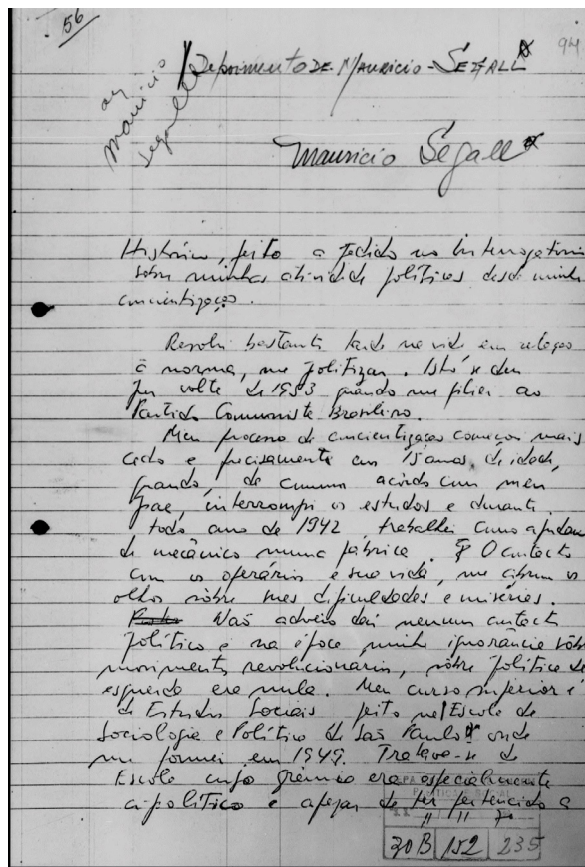 56
94
Depoimento DE Mauricio SEGALL
ay
Mauricio
Segall
Mauricio Segall
Histórico, feito a pedido no interrogatório
sobre minhas atividades políticas desde minha
concientização.
Resolvi bastante tarde na vida em relação
à norma, me politizar. Isto se deu
por volta de 1953 quando me filiei ao
Partido Comunista Brasileiro.
Meu processo de concientização começou mais
cedo e precisamente aos 15 anos de idade,
quando, de comum acôrdo com meu
pae, interrompi os estudos e durante
todo ano de 1942 trabalhei como ajudante
de mecânico numa fábrica. O contacto
com os operários e sua vida, me abriu os
olhos sôbre suas dificuldades e misérias.
Não adveio daí nenhum contacto
político e na época minha ignorância sôbre
movimentos revolucionários, sôbre política de
esquerda era nula. Meu curso superior é
de Estudos Sociais feito na Escola de
Sociologia e Política de São Paulo onde
me formei em 1949. Tratava-se de
Escola cujo grêmio era especialmente
apolítico e apezar de ter pertencido a
30B 152 235